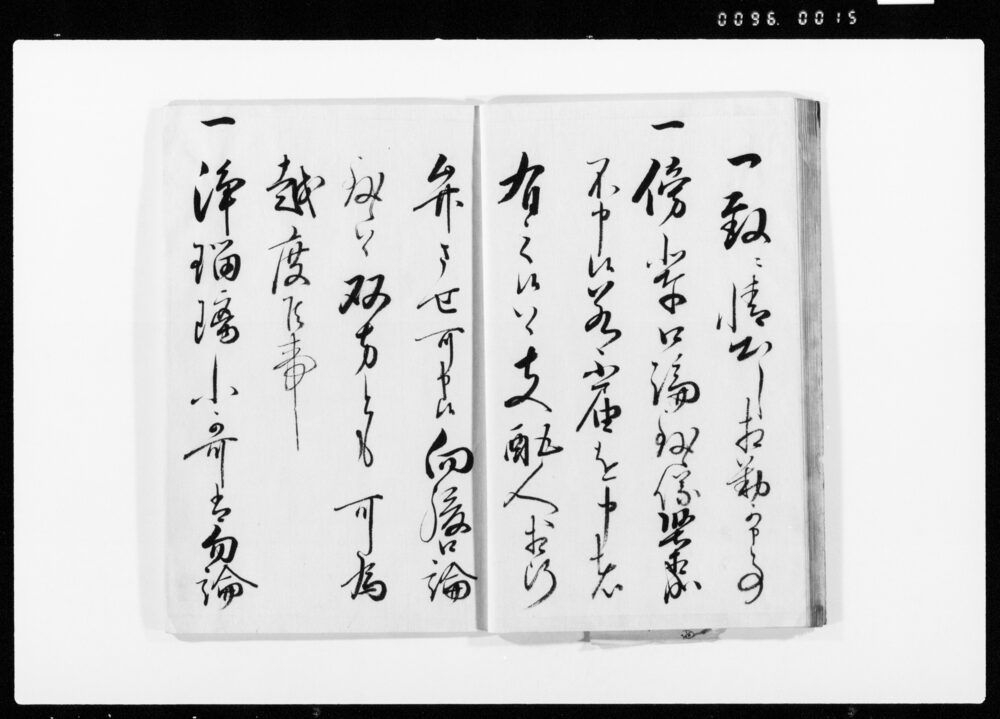 0096.0015
一致ニ情出し相勤可申事
一傍輩口論致儀堅
不申候若不届を申者
有之候ハヽ支配人相断
弁させ可申候向後口論
致候ハヽ双方とも可為
越度候事
一浄瑠璃小哥者勿論